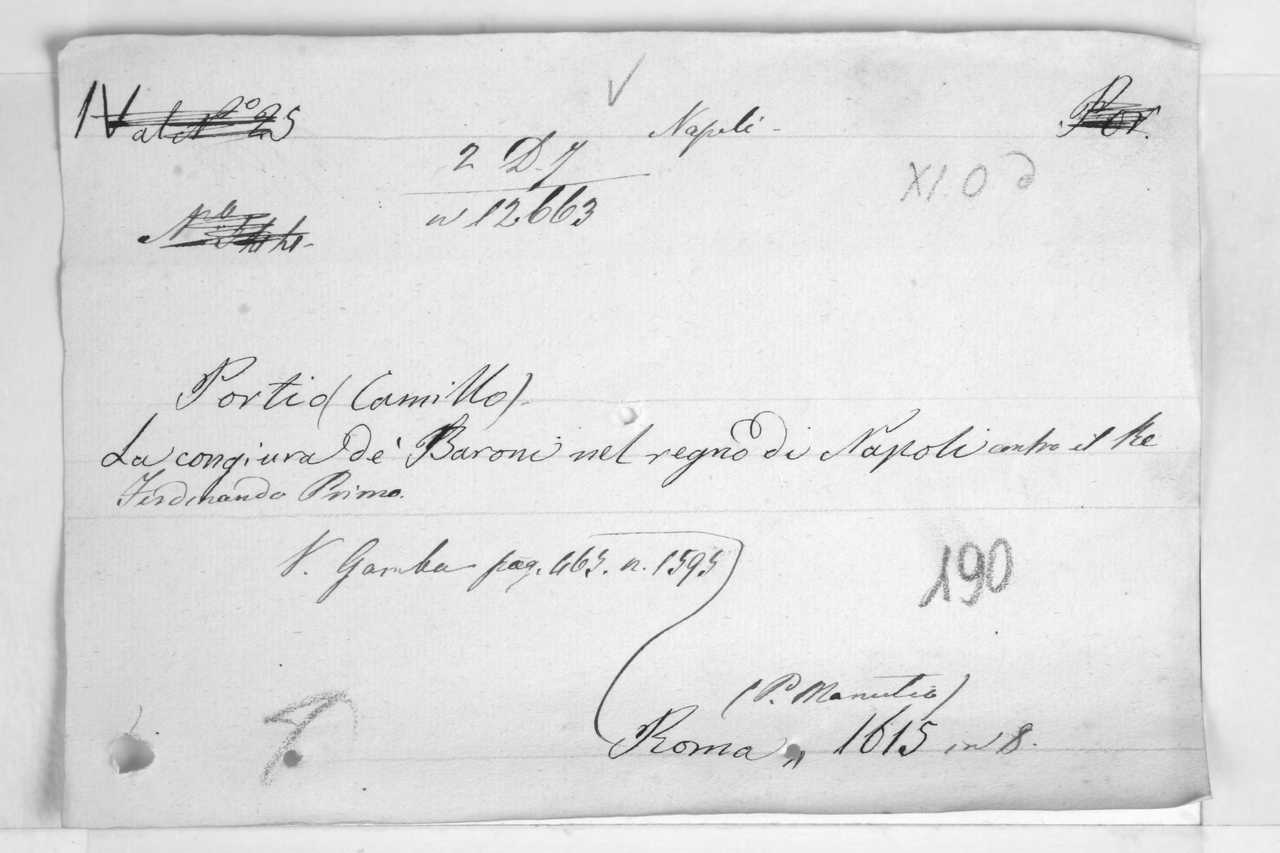 Napoli.
2 D. 7
n 12663
XI. O
Portio (Camillo).
La congiura de' Baroni nel regno di Napoli contro il Re
Ferdinando Primo.
V. Gamba pag. 463. n. 1595
190
(P. Manutio)
Roma, 1615 in 8.